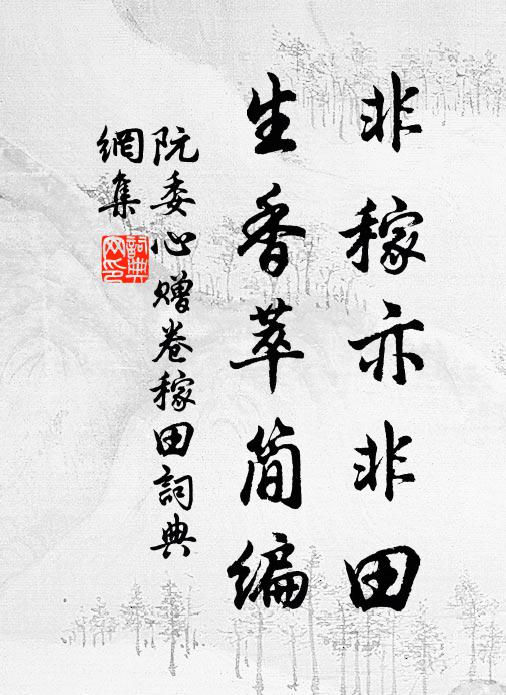 非稼亦非田
生香萃简编
阮委心赠卷稼田詞典
網集
詞典網印